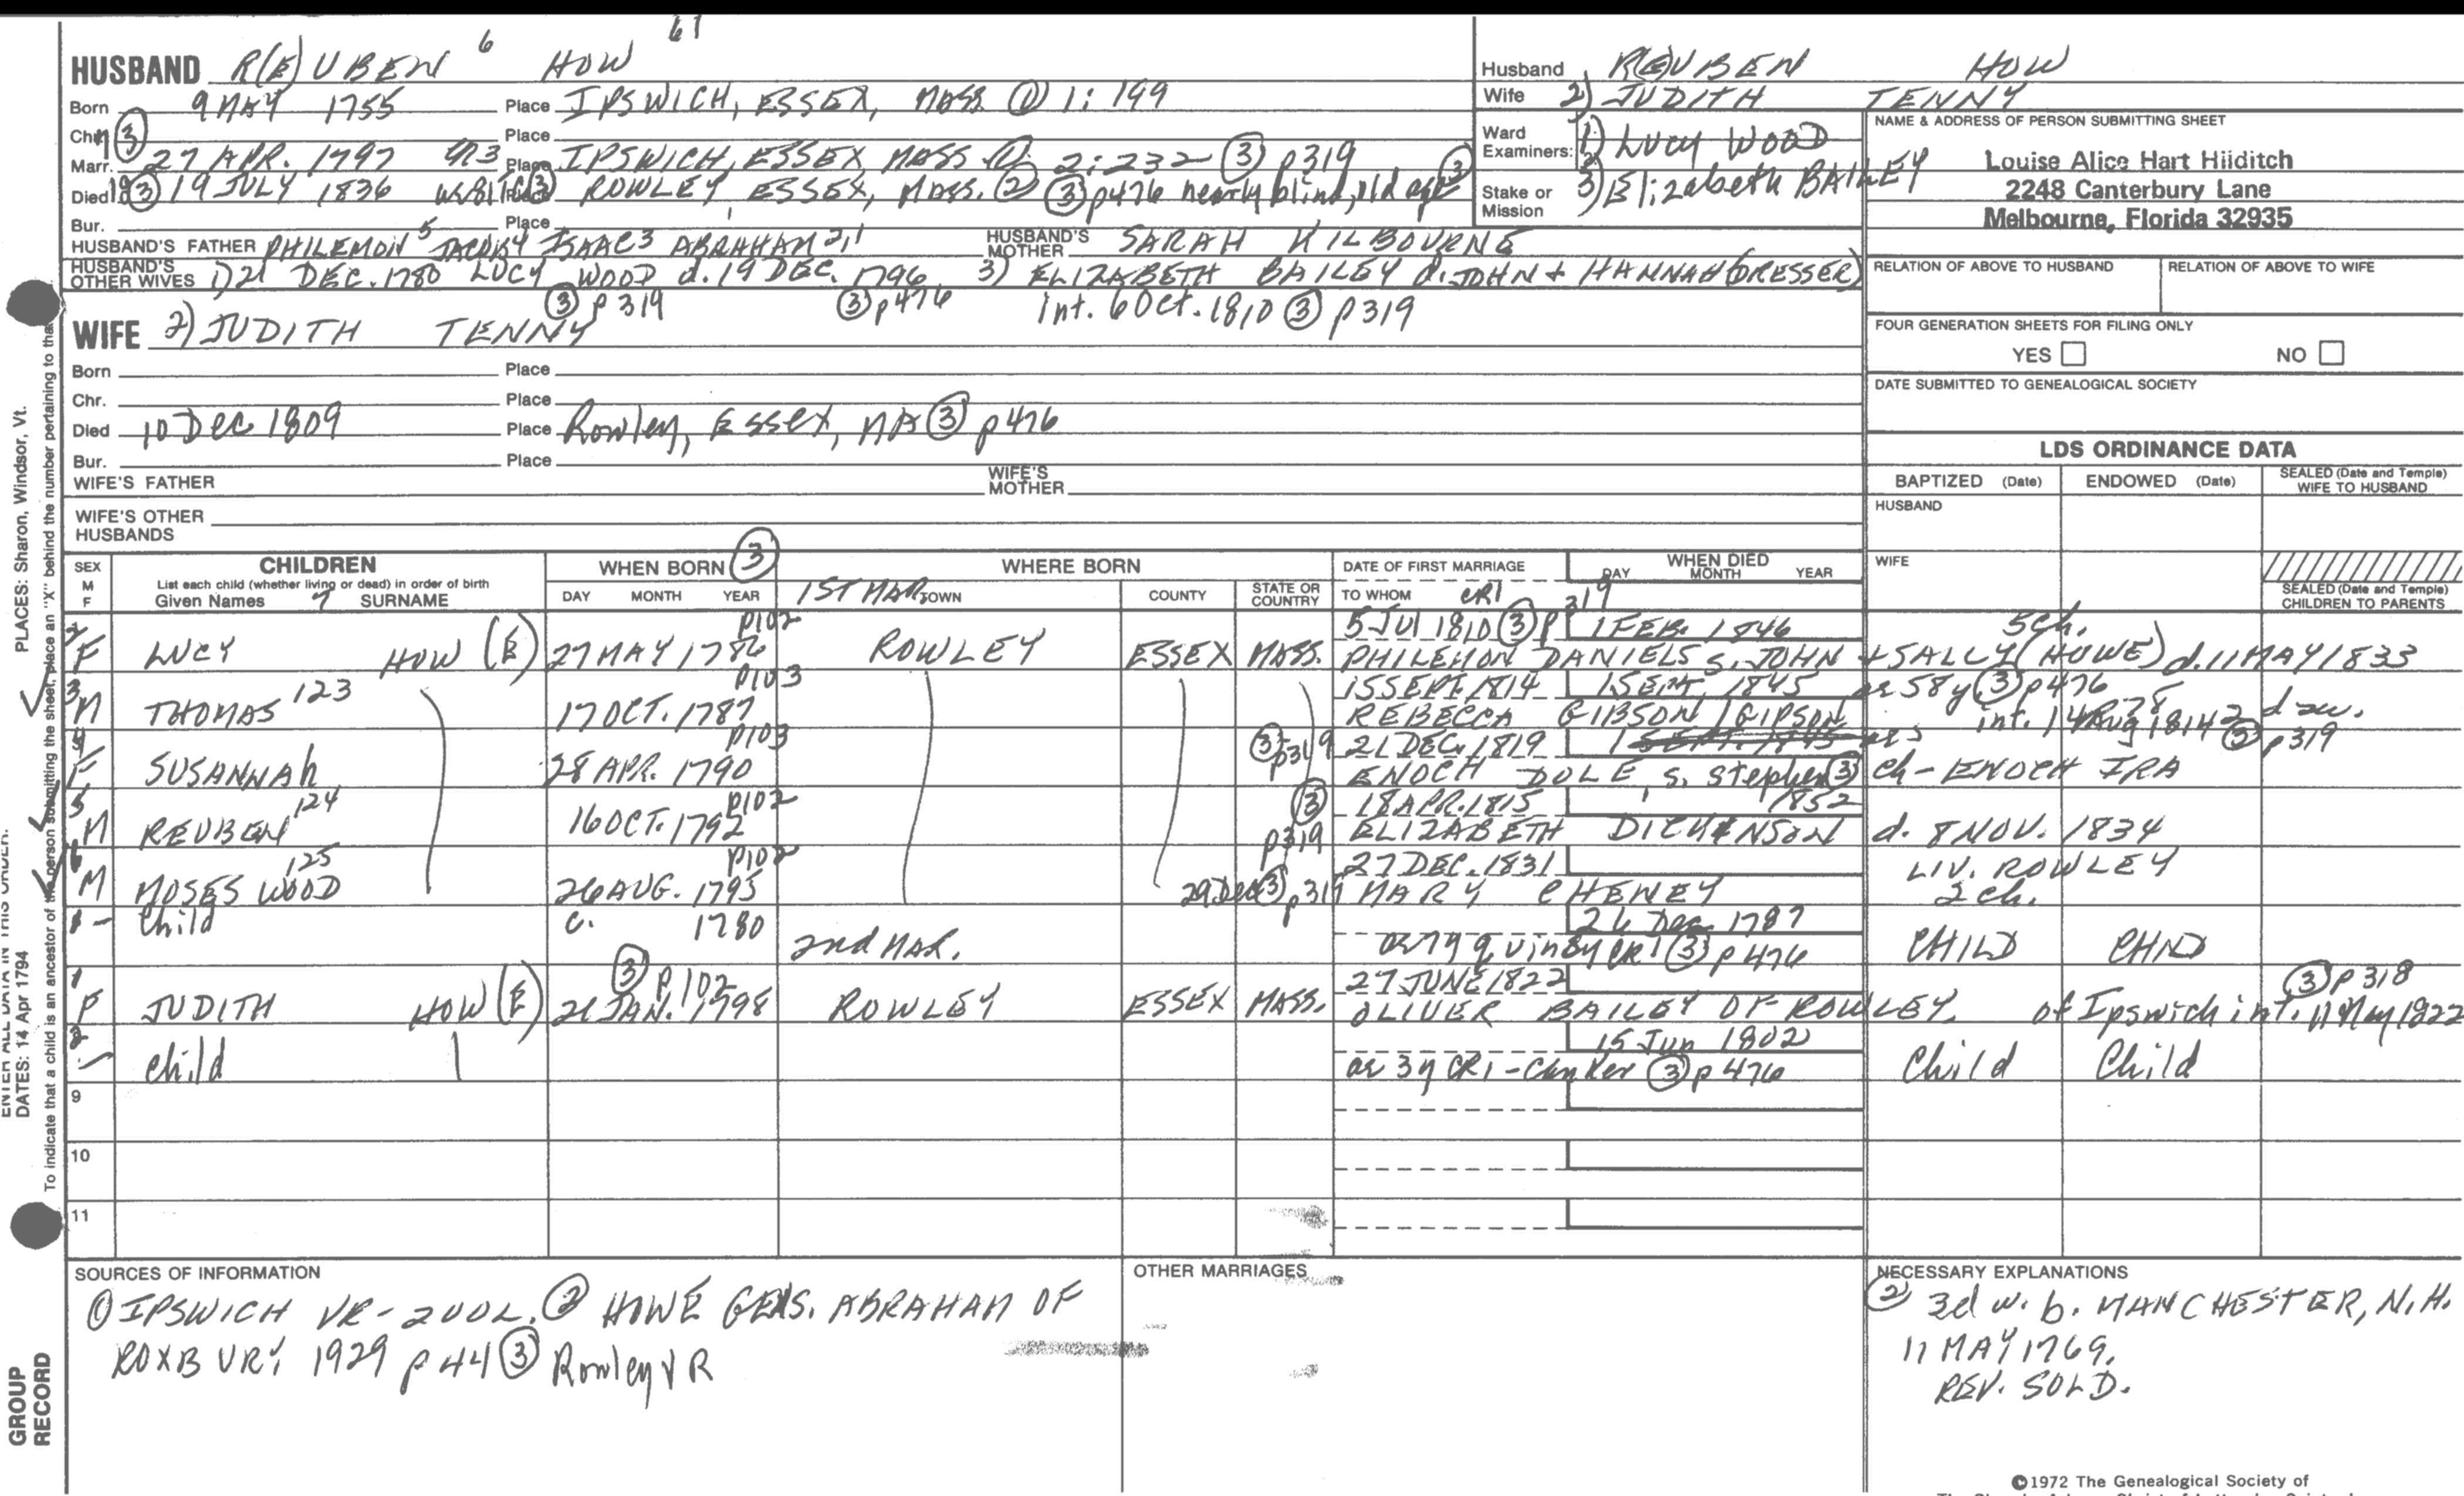 61
HUSBAND R(E)UBEN 6 HOW
Born 9 MAY 1755 Place IPSWICH, ESSEX, MASS. ① 1:199
Chr. ③ Place
Marr. 27 APR. 1797 Place IPSWICH, ESSEX, MASS. ① 2:232 ③ p319
Died ③ 19 JULY 1836 Place ROWLEY, ESSEX, MASS. ② ③ p476 nearly blind, old age ③
Bur. Place
HUSBAND'S FATHER PHILEMON 5 JACOB 4 ISAAC 3 ABRAHAM 2,1 HUSBAND'S MOTHER SARAH KILBOURNE
HUSBAND'S OTHER WIVES 1) 21 DEC. 1780 LUCY WOOD d. 19 DEC. 1796 3) ELIZABETH BAILEY d. JOHN + HANNAH (DRESSER)
③ p319 ③ p476 int. 6 Oct. 1810 ③ p319
WIFE 2) JUDITH TENNY
Born Place
Chr. Place
Died 10 Dec 1809 Place Rowley, Essex, MA ③ p476
Bur. Place
WIFE'S FATHER WIFE'S MOTHER
WIFE'S OTHER HUSBANDS
Husband R(E)UBEN HOW
Wife 2) JUDITH TENNY
Ward Examiners: 1) LUCY WOOD
Stake or Mission 3) Elizabeth BAILEY
NAME & ADDRESS OF PERSON SUBMITTING SHEET
Louise Alice Hart Hilditch
2248 Canterbury Lane
Melbourne, Florida 32935
RELATION OF ABOVE TO HUSBAND RELATION OF ABOVE TO WIFE
FOUR GENERATION SHEETS FOR FILING ONLY
YES NO
DATE SUBMITTED TO GENEALOGICAL SOCIETY
LDS ORDINANCE DATA
BAPTIZED (Date) ENDOWED (Date) SEALED (Date and Temple) WIFE TO HUSBAND
HUSBAND
WIFE
SEALED (Date and Temple) CHILDREN TO PARENTS
SEX M F CHILDREN WHEN BORN ③ WHERE BORN DATE OF FIRST MARRIAGE WHEN DIED
List each child (whether living or dead) in order of birth
Given Names 7 SURNAME DAY MONTH YEAR 1ST MAR. TOWN COUNTY STATE OR COUNTRY TO WHOM CR1 DAY MONTH YEAR
p102 5 Jul 1810 ③ p 319 1 FEB. 1846 5 ch.
2 F LUCY HOW (E) 27 MAY 1786 ROWLEY ESSEX MASS. PHILEMON DANIELS s. JOHN + SALLY (HOWE) d. 11 MAY 1833
p103 15 SEPT. 1814 1 SEPT. 1845 ae 58y ③ p476
3 M THOMAS 123 17 OCT. 1787 REBECCA GIBSON / GIPSON int. 14 Aug 1814 ③ p319
p103 ③ p319 21 DEC. 1819
4 F SUSANNAh 28 APR. 1790 ENOCH DOLE, s. Stephen ③ Ch - ENOCH IRA
p102 ③ p319 18 APR. 1815 1852
5 M REUBEN 124 16 OCT. 1792 ELIZABETH DICKENSON d. 8 NOV. 1834
p102 27 DEC. 1831 LIV. ROWLEY
6 M MOSES WOOD 125 26 AUG. 1795 29 Dec ③ p319 MARY CHENEY 2 ch.
1 - Child c. 1780 26 Dec 1787
2nd MAR. ae 7y quinsy CR1 ③ p476 CHILD CHILD
③ p.102 27 JUNE 1822 ③ p318
1 F JUDITH HOW (E) 21 JAN. 1798 ROWLEY ESSEX MASS. OLIVER BAILEY OF ROWLEY. of Ipswich int. 11 May 1822
15 Jun 1802
2 - child ae 3y CR1 - Canker ③ p476 Child Child
9
10
11
SOURCES OF INFORMATION
① IPSWICH VR - 2 VOL. ② HOWE GENS. ABRAHAM OF
ROXBURY 1929 p 44 ③ Rowley VR
OTHER MARRIAGES
NECESSARY EXPLANATIONS
② 3d w. b. MANCHESTER, N.H.
11 MAY 1769.
REV. SOLD.
©1972 The Genealogical Society of
PLACES: Sharon, Windsor, Vt.
DATES: 14 Apr 1794
ENTER ALL DATA IN THIS ORDER:
To indicate that a child is an ancestor of the person submitting the sheet, place an "X" behind the number pertaining to that
GROUP
RECORD